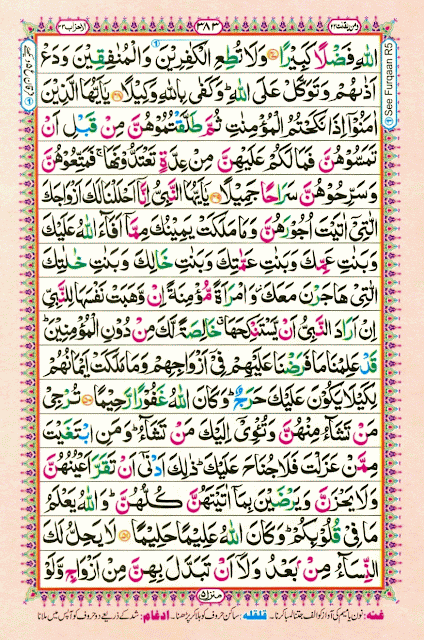 ومن یقنت ۲۲
۳۸۳
الاحزاب ۳۳
اللّٰهِ فَضْلًا كَبِیْرًا وَلَا تُطِعِ الْكٰفِرِیْنَ وَالْمُنٰفِقِیْنَ وَدَعْ
اَذٰىهُمْ وَتَوَكَّلْ عَلَى اللّٰهِ وَكَفٰى بِاللّٰهِ وَكِیْلًا یٰۤاَیُّهَا الَّذِیْنَ
اٰمَنُوْۤا اِذَا نَكَحْتُمُ الْمُؤْمِنٰتِ ثُمَّ طَلَّقْتُمُوْهُنَّ مِنْ قَبْلِ اَنْ
تَمَسُّوْهُنَّ فَمَا لَكُمْ عَلَیْهِنَّ مِنْ عِدَّةٍ تَعْتَدُّوْنَهَا فَمَتِّعُوْهُنَّ
وَسَرِّحُوْهُنَّ سَرَاحًا جَمِیْلًا یٰۤاَیُّهَا النَّبِیُّ اِنَّاۤ اَحْلَلْنَا لَكَ اَزْوَاجَكَ
الّٰتِیْۤ اٰتَیْتَ اُجُوْرَهُنَّ وَمَا مَلَكَتْ یَمِیْنُكَ مِمَّاۤ اَفَآءَ اللّٰهُ عَلَیْكَ
وَبَنٰتِ عَمِّكَ وَبَنٰتِ عَمّٰتِكَ وَبَنٰتِ خَالِكَ وَبَنٰتِ خٰلٰتِكَ
الّٰتِیْ هَاجَرْنَ مَعَكَ وَامْرَاَةً مُّؤْمِنَةً اِنْ وَّهَبَتْ نَفْسَهَا لِلنَّبِیِّ
اِنْ اَرَادَ النَّبِیُّ اَنْ یَّسْتَنْكِحَهَا خَالِصَةً لَّكَ مِنْ دُوْنِ الْمُؤْمِنِیْنَ
قَدْ عَلِمْنَا مَا فَرَضْنَا عَلَیْهِمْ فِیْۤ اَزْوَاجِهِمْ وَمَا مَلَكَتْ اَیْمَانُهُمْ
لِكَیْلَا یَكُوْنَ عَلَیْكَ حَرَجٌ وَكَانَ اللّٰهُ غَفُوْرًا رَّحِیْمًا تُرْجِیْ
مَنْ تَشَآءُ مِنْهُنَّ وَتُـْٔوِیْۤ اِلَیْكَ مَنْ تَشَآءُ وَمَنِ ابْتَغَیْتَ
مِمَّنْ عَزَلْتَ فَلَا جُنَاحَ عَلَیْكَ ذٰلِكَ اَدْنٰۤى اَنْ تَقَرَّ اَعْیُنُهُنَّ
وَلَا یَحْزَنَّ وَیَرْضَیْنَ بِمَاۤ اٰتَیْتَهُنَّ كُلُّهُنَّ وَاللّٰهُ یَعْلَمُ
مَا فِیْ قُلُوْبِكُمْ وَكَانَ اللّٰهُ عَلِیْمًا حَلِیْمًا لَا یَحِلُّ لَكَ
النِّسَآءُ مِنْۢ بَعْدُ وَلَاۤ اَنْ تَبَدَّلَ بِهِنَّ مِنْ اَزْوَاجٍ وَّلَوْ
See Furqaan R5
منزل ۵
غنه: نون یا میم کی آواز کو الف جتنا لمبا کرنا۔ قلقله: ساکن حروف کو ہلا کر پڑھنا۔ ادغام: شد کے ذریعے دو حروف کو آپس میں ملانا